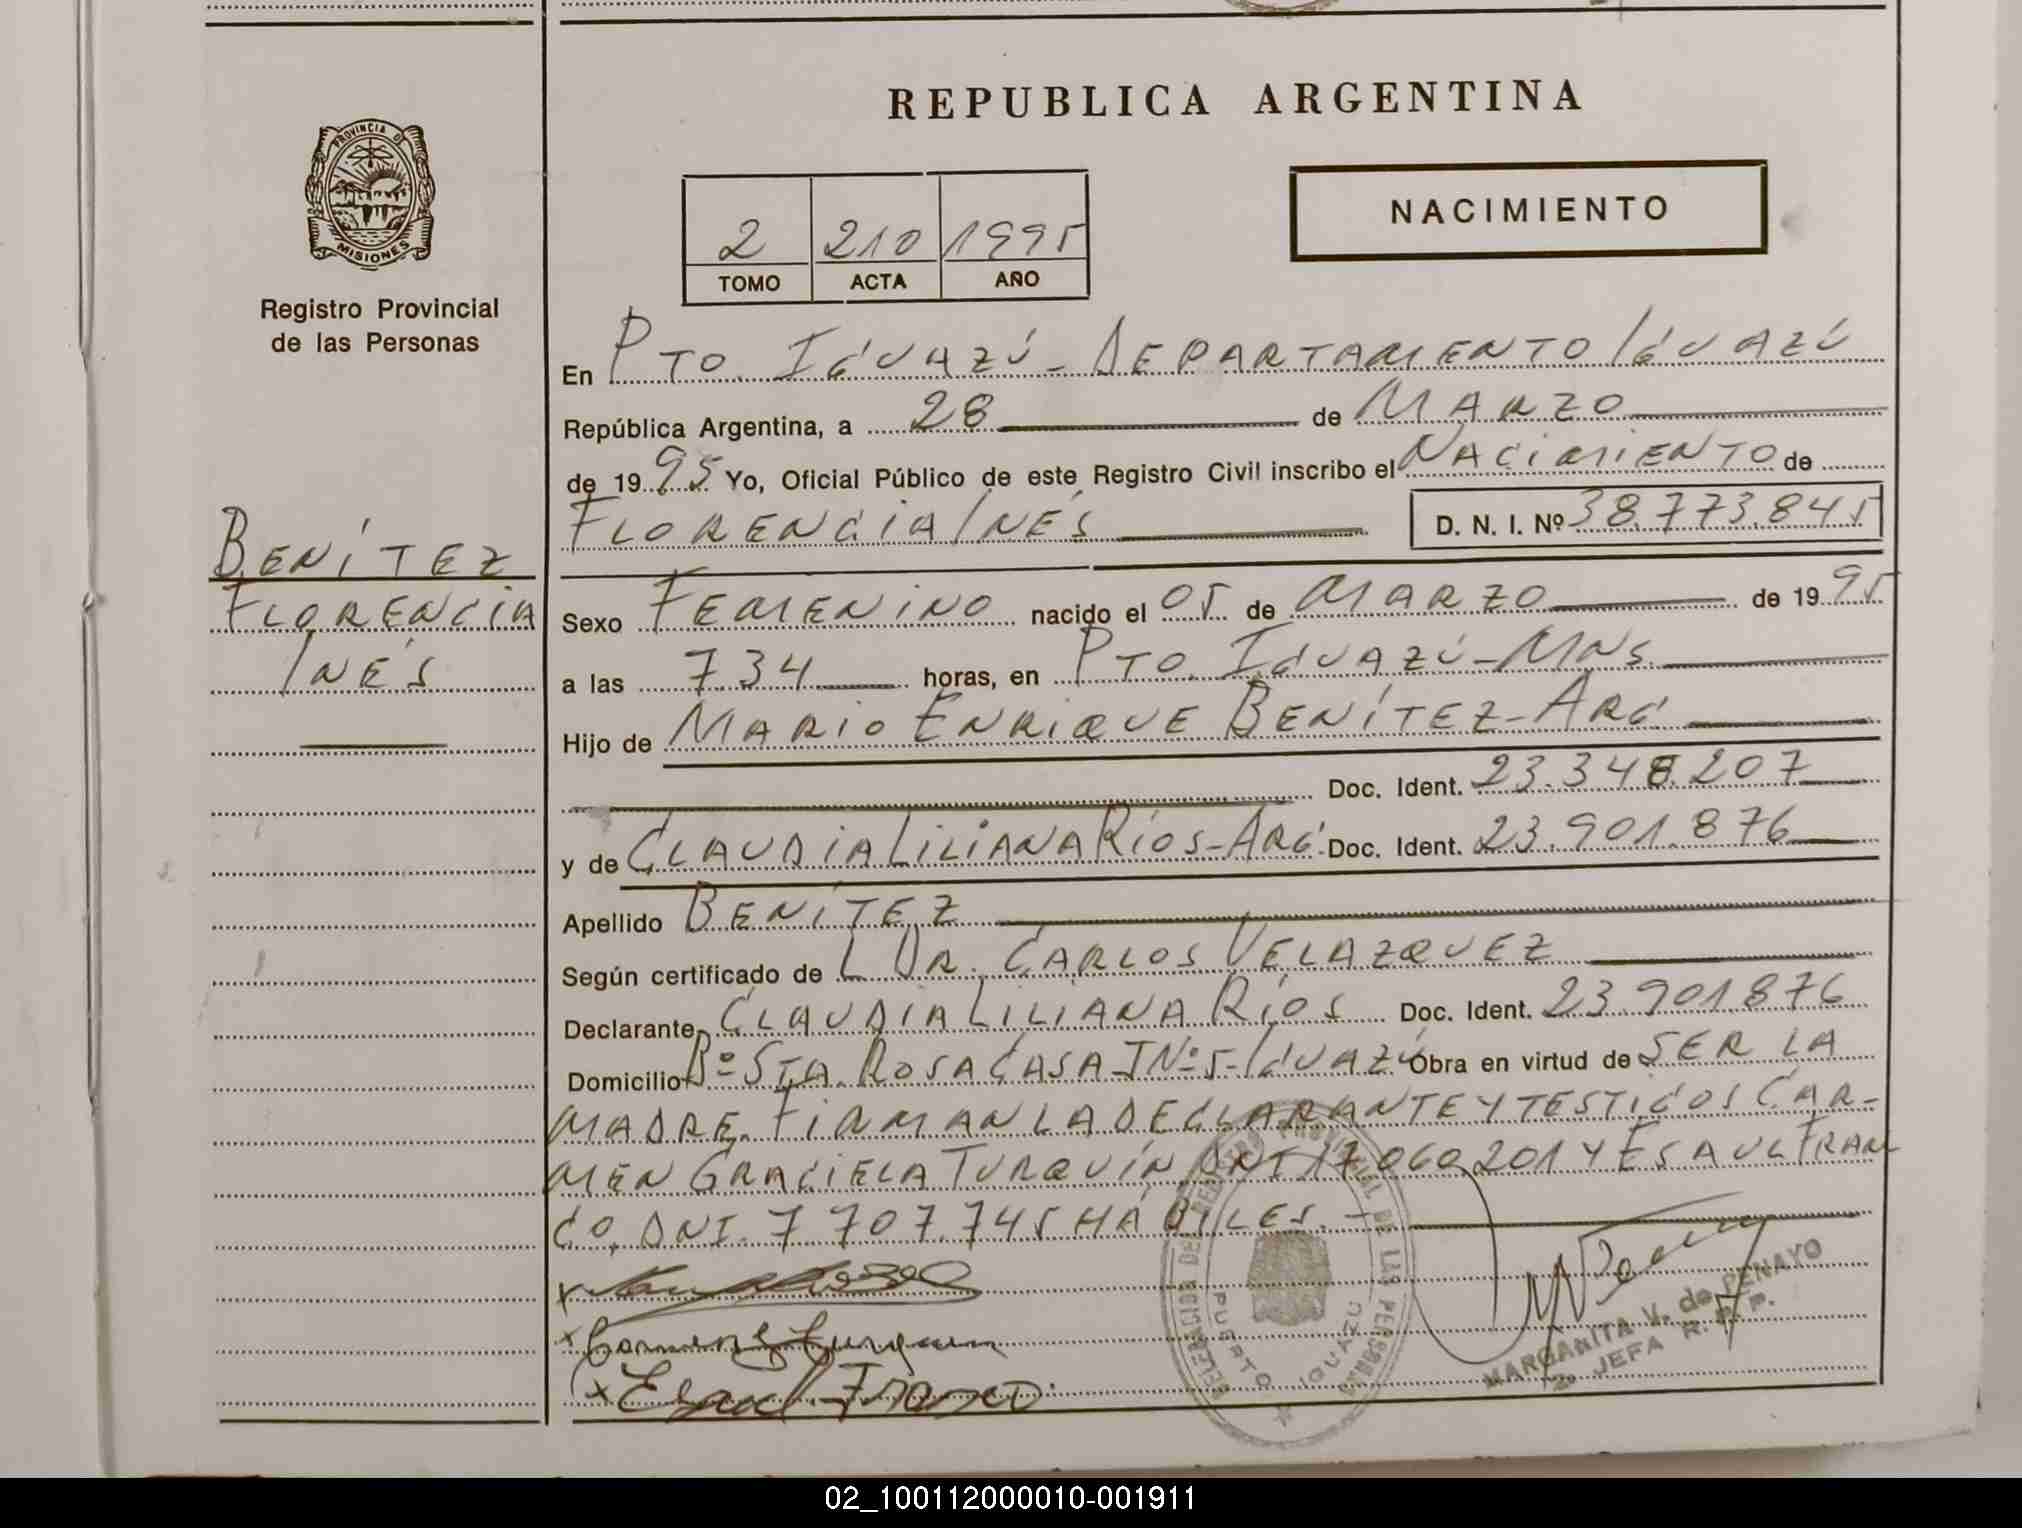 REPUBLICA ARGENTINA
PROVINCIA DE
MISIONES
Registro Provincial
de las Personas
NACIMIENTO
2 210 1995
TOMO ACTA AÑO
En Pto. Iguazú - Departamento Iguazú
República Argentina, a 28 de Marzo
de 1995 Yo, Oficial Público de este Registro Civil inscribo el Nacimiento de
Florencia Inés D. N. I. Nº 38.773.845
Benítez
Florencia
Inés
Sexo Femenino nacido el 05 de Marzo de 1995
a las 7.34 horas, en Pto. Iguazú - Mns.
Hijo de Mario Enrique Benítez - Arg.
Doc. Ident. 23.348.207
y de Claudia Liliana Ríos - Arg. Doc. Ident. 23.901.876
Apellido Benítez
Según certificado de Dr. Carlos Velazquez
Declarante Claudia Liliana Ríos Doc. Ident. 23.901.876
Domicilio Bº Sta. Rosa Casa Nº 5 - Iguazú Obra en virtud de ser la
madre. Firman la declarante y testigos Car-
men Graciela Turquín DNI 17.060.201 y Esaul Fran
co. DNI. 7.707.745 hábiles.
x
x Carmen G Turquin
x Esaul Franco
DELEGACION DEL REGISTRO PROVINCIAL DE LAS PERSONAS
PUERTO IGUAZU
MARGANITA V. de PENAYO
JEFA R. P. P.
02_100112000010-001911